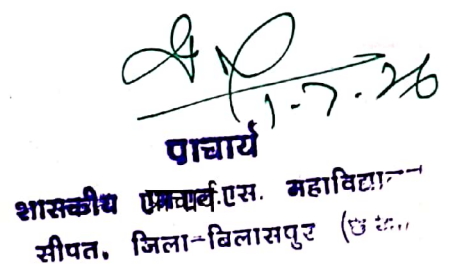 1-7-26
प्राचार्य
शासकीय एम.एस. महाविद्या
सीपत, जिला-बिलासपुर (छ